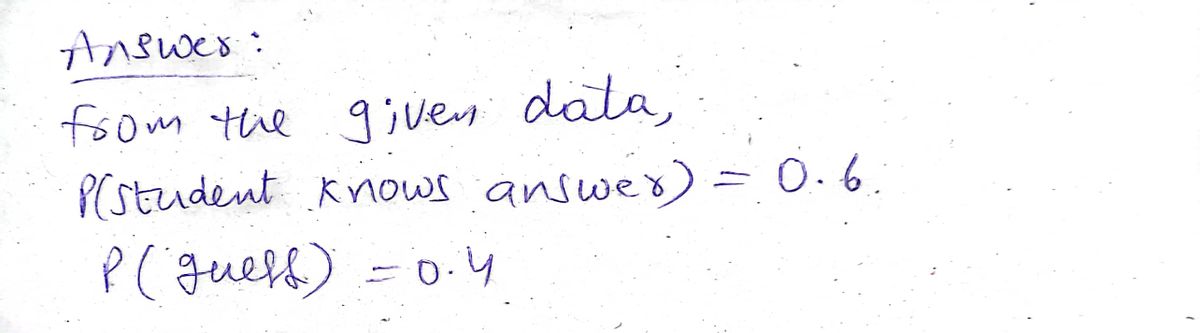 Answer:
from the given data,
P(student knows answer) = 0.6.
P(guess) = 0.4